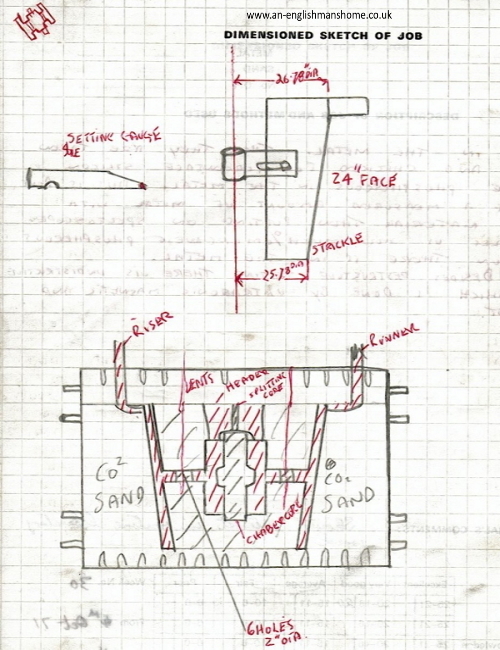 www.an-englishmanshome.co.uk
DIMENSIONED SKETCH OF JOB
26.78" DIA
SETTING GAUGE
24" FACE
STRICKLE
25.28" DIA
RISER
RUNNER
VENTS
HEADER
SPLITTING
CORE
CO²
SAND
CO₂
SAND
6 HOLES
2" DIA.